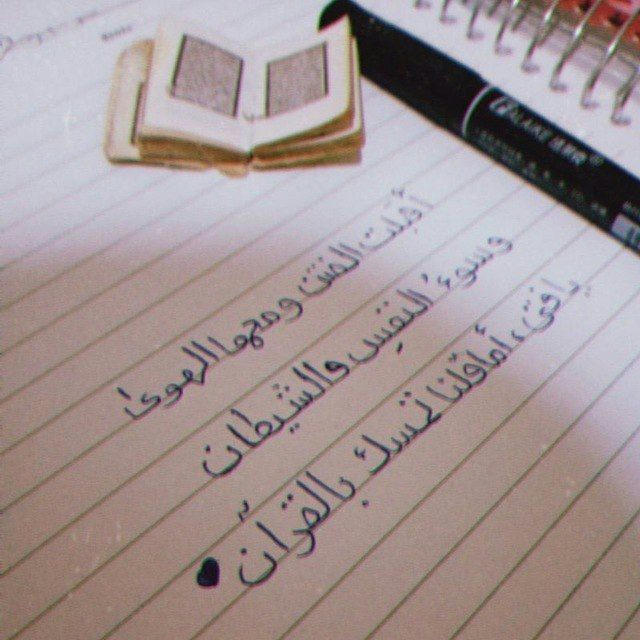 أقبلت الفتن ومعها الهوى
وسوءُ النفس والشيطان
يا فتى، أما قلنا تمسك بالقرآن